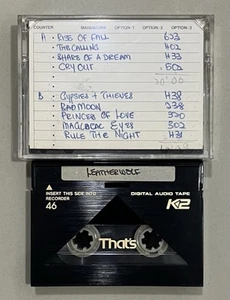 COUNTER OPTION-1 OPTION-2 OPTION-3
A. RISE OR FALL 623
THE CALLING 402
SHARE OF A DREAM 433
CRY OUT 502
B. GYPSIES + THIEVES 438
BAD MOON 238
PRINCESS OF LOVE 520
MAGICAL EYES 302
RULE THE NIGHT 431
LEATHERWOLF
INSERT THIS SIDE INTO RECORDER
DIGITAL AUDIO TAPE
46
K2
That's